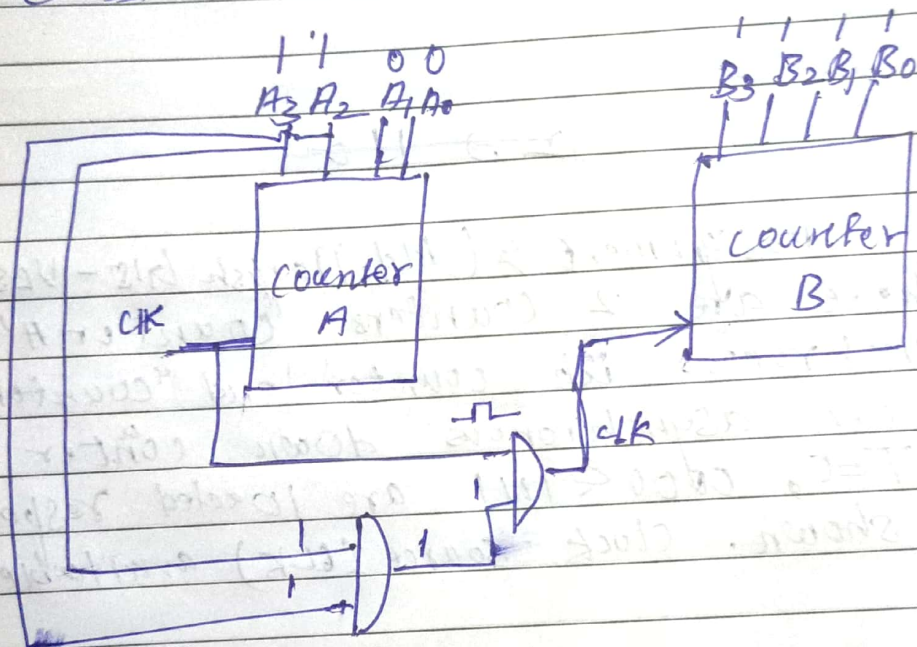 1 1 0 0
A3 A2 A1 A0
1 1 1 1
B3 B2 B1 B0
counter
A
counter
B
CLK
CLK
1
1
1
1